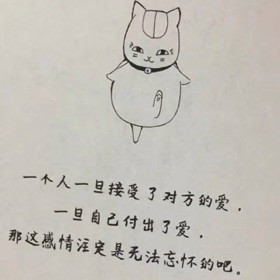 一个人一旦接受了对方的爱，
一旦自己付出了爱，
那这感情注定是无法忘怀的吧。